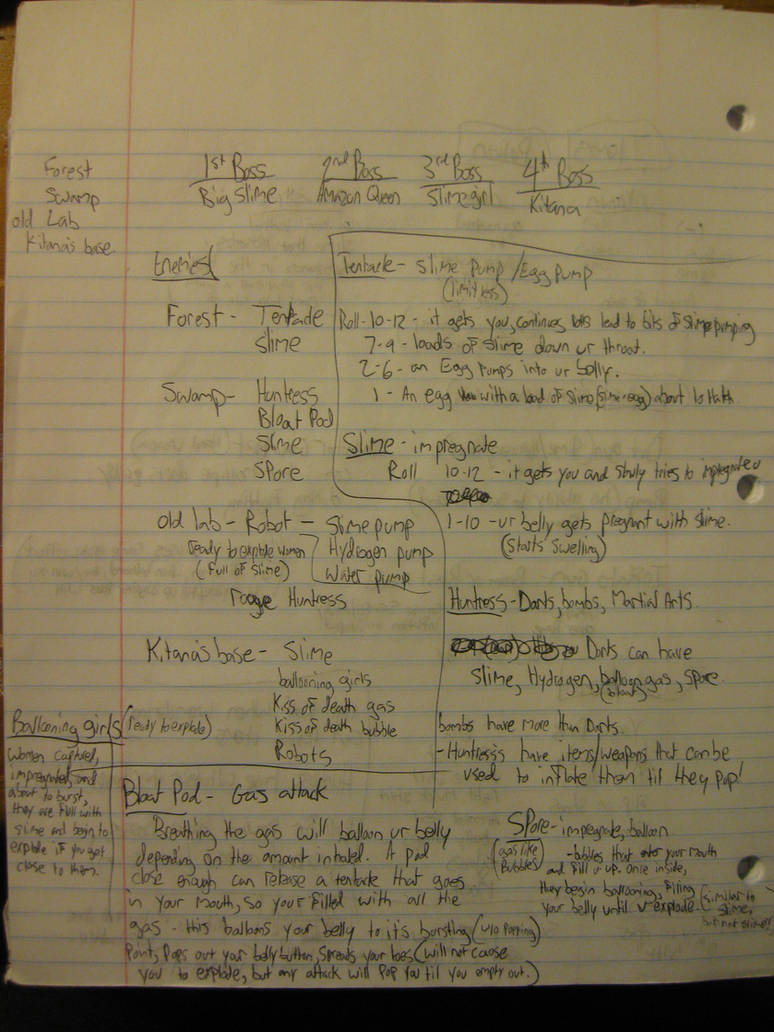 Forest
Swamp
old Lab
Kitana's base
1st Boss
Big Slime
2nd Boss
Amazon Queen
3rd Boss
Slimegirl
4th Boss
Kitana
Enemies
Forest - Tentacle
Slime
Swamp - Huntress
Bloat Pod
Slime
Spore
Old lab - Robot - Slime pump
Hydrogen pump
Water pump
Ready to explode women
(Full of slime)
Huntress
Kitana's base - Slime
ballooning girls
(ready to explode)
Kiss of death gas
Kiss of death bubble
Robots
Tentacle - Slime pump / Egg Pump
(limitless)
Roll - 10-12 - it gets you, continues, lead to bits of slime pumping
7-9 - loads of slime down ur throat.
2-6 - an Egg pumps into ur belly.
1 - An egg with a load of slime (slime egg) about to hatch
Slime - impregnate
Roll 10-12 - it gets you and tries to impregnate u
1-10 - ur belly gets pregnant with slime.
(Starts Swelling)
Huntress - Darts, bombs, Martial Arts.
Darts can have
Slime, Hydrogen, balloon gas, spore
(bloat)
bombs have more than Darts.
- Huntress's have items/weapons that can be
used to inflate them til they pop!
Ballooning girls
Women captured,
impregnated, and
about to burst,
they are full with
slime and begin to
explode if you get
close to them.
Bloat Pod - Gas attack
Breathing the gas will balloon ur belly
depending on the amount inhaled. A pod
close enough can release a tentacle that goes
in your mouth, so your filled with all the
gas - this balloons your belly to it's bursting (w/o popping)
Point, Pops out your belly button, spreads your toes (will not cause
you to explode, but any attack will pop you til you empty out.)
Spore - impregnate, balloon
(gas like
bubbles)
- bubbles that enter your mouth
and fill u up. Once inside,
they begin ballooning, filling
your belly until u explode.
(similar to
slime,
but not slime!)